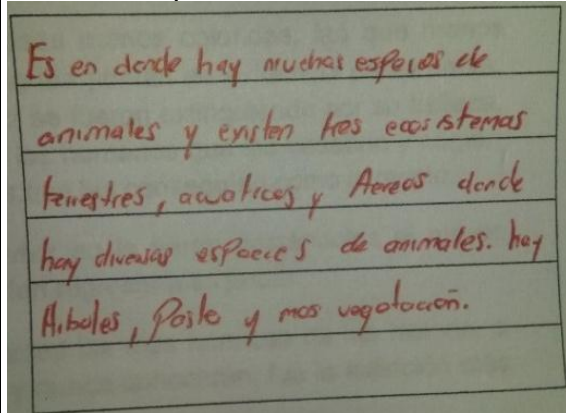 Es en donde hay muchas especies de
animales y existen tres ecosistemas
terrestres, acuaticos y Aereos donde
hay diversas espceies de animales. hay
Arboles, Pasto y mas vegetacion.